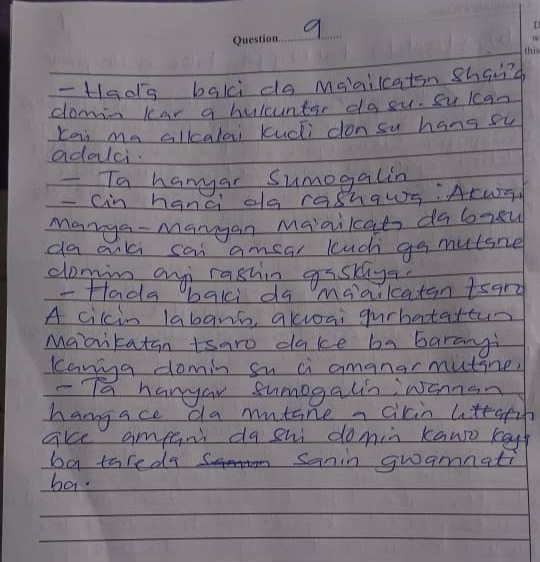 Question 9
- Hada baki da Ma'aikatan Shari'a
domin kar a hukuntar da su. su kan
kai ma alkalai kudi don su hana su
adalci.
- Ta hanyar Sumogalin
- Cin hanci da rashawa: Akwai
Manya-Manyan Ma'aikata da basu
da aiki sai amsar kudi ga mutane
domin anj rashin gaskiya.
- Hada baki da ma'aikatan tsaro
A cikin labaris, akwai gurbatattun
Ma'aikatan tsaro da ke ba barayi
Kariya domin su ci amanar mutane.
- Ta hanyar Sumogalin: wannan
hanyace da mutane a cikin littafin
ake amfani da shi domin kawo kaya
ba tareda sanin gwamnati
ba.